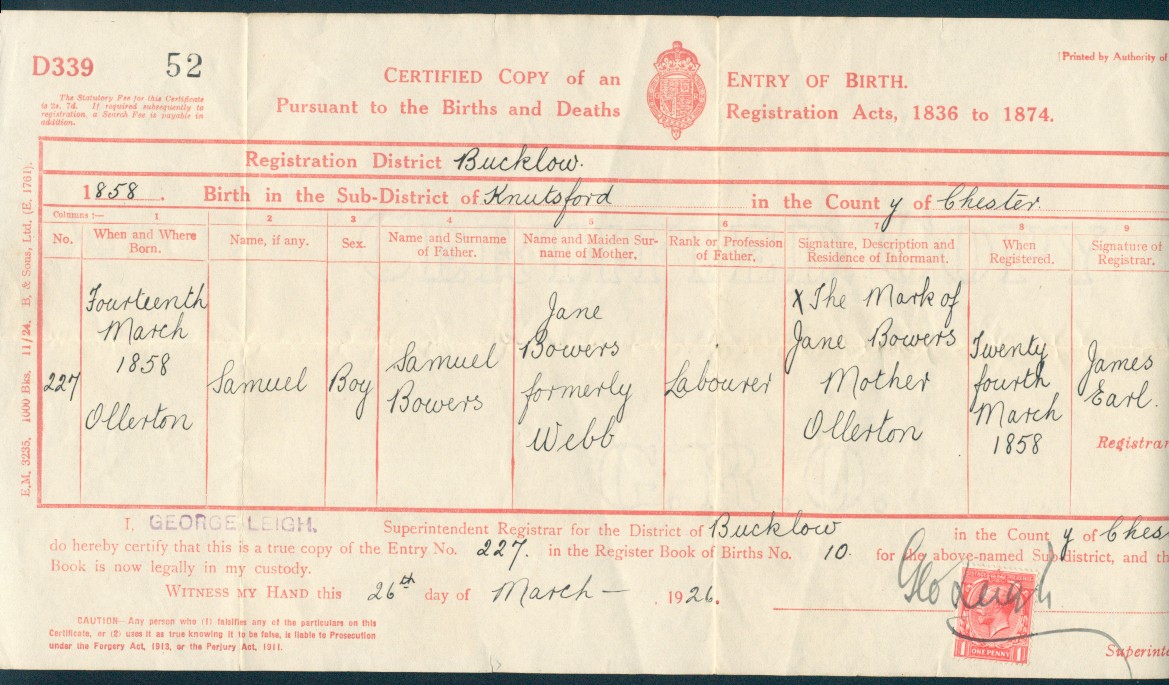 D339 52
The Statutory Fee for this Certificate
is 2s. 7d. If required subsequently to
registration, a Search Fee is payable in
addition.
CERTIFIED COPY of an ENTRY OF BIRTH.
Pursuant to the Births and Deaths Registration Acts, 1836 to 1874.
[Printed by Authority of
Registration District Bucklow.
1858. Birth in the Sub-District of Knutsford in the County of Chester.
Columns :— 1 2 3 4 5 6 7 8 9
No. When and Where Born. Name, if any. Sex. Name and Surname of Father. Name and Maiden Surname of Mother. Rank or Profession of Father. Signature, Description and Residence of Informant. When Registered. Signature of Registrar.
227
Fourteenth
March
1858
Ollerton
Samuel
Boy
Samuel
Bowers
Jane
Bowers
formerly
Webb
Labourer
X The Mark of
Jane Bowers
Mother
Ollerton
Twenty
fourth
March
1858
James
Earl.
Registrar
I, GEORGE LEIGH, Superintendent Registrar for the District of Bucklow in the County of Ches
do hereby certify that this is a true copy of the Entry No. 227. in the Register Book of Births No. 10. for the above-named Sub-district, and th
Book is now legally in my custody.
WITNESS MY HAND this 26th day of March — , 1926.
Geo Leigh
POSTAGE REVENUE
ONE PENNY
1 1
Superinte
CAUTION— Any person who (1) falsifies any of the particulars on this
Certificate, or (2) uses it as true knowing it to be false, is liable to Prosecution
under the Forgery Act, 1913, or the Perjury Act, 1911.
E.M. 3235. 1000 Bks. 11/24. B. & Sons, Ltd. (E. 1761).